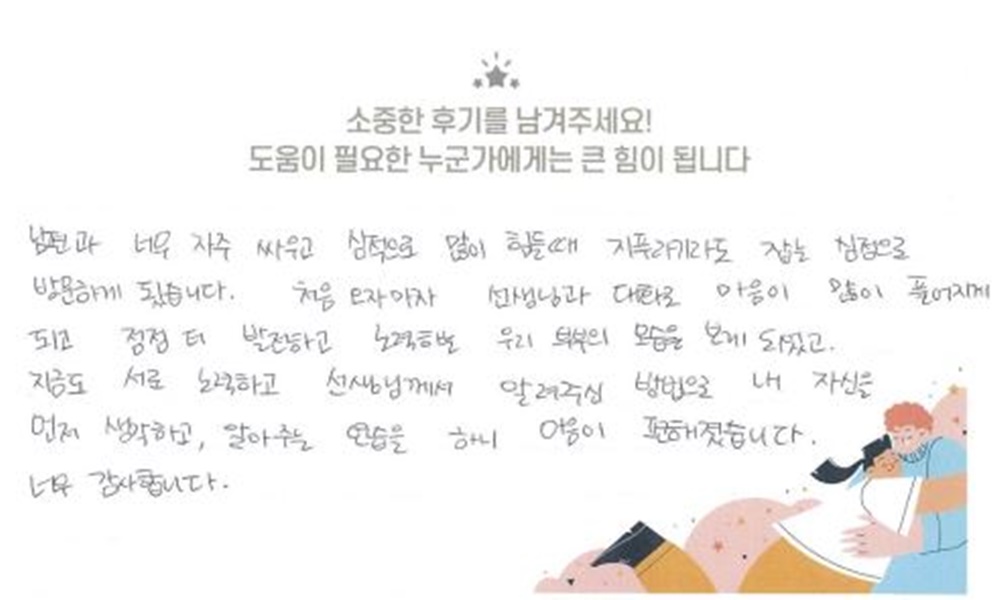 소중한 후기를 남겨주세요!
도움이 필요한 누군가에게는 큰 힘이 됩니다
남편과 너무 자주 싸우고 심적으로 많이 힘들때 지푸라기라도 잡는 심정으로
방문하게 됐습니다. 처음 오자마자 선생님과 대화로 마음이 많이 풀어지게
되고 점점 더 발전하고 노력하는 우리 부부의 모습을 보게 되었고.
지금도 서로 노력하고 선생님께서 알려주신 방법으로 내 자신을
먼저 생각하고, 알아주는 연습을 하니 마음이 편해졌습니다.
너무 감사합니다.